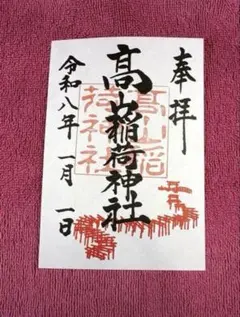 奉拝
髙山稲荷神社
髙山稲荷神社
令和八年 一月 一日